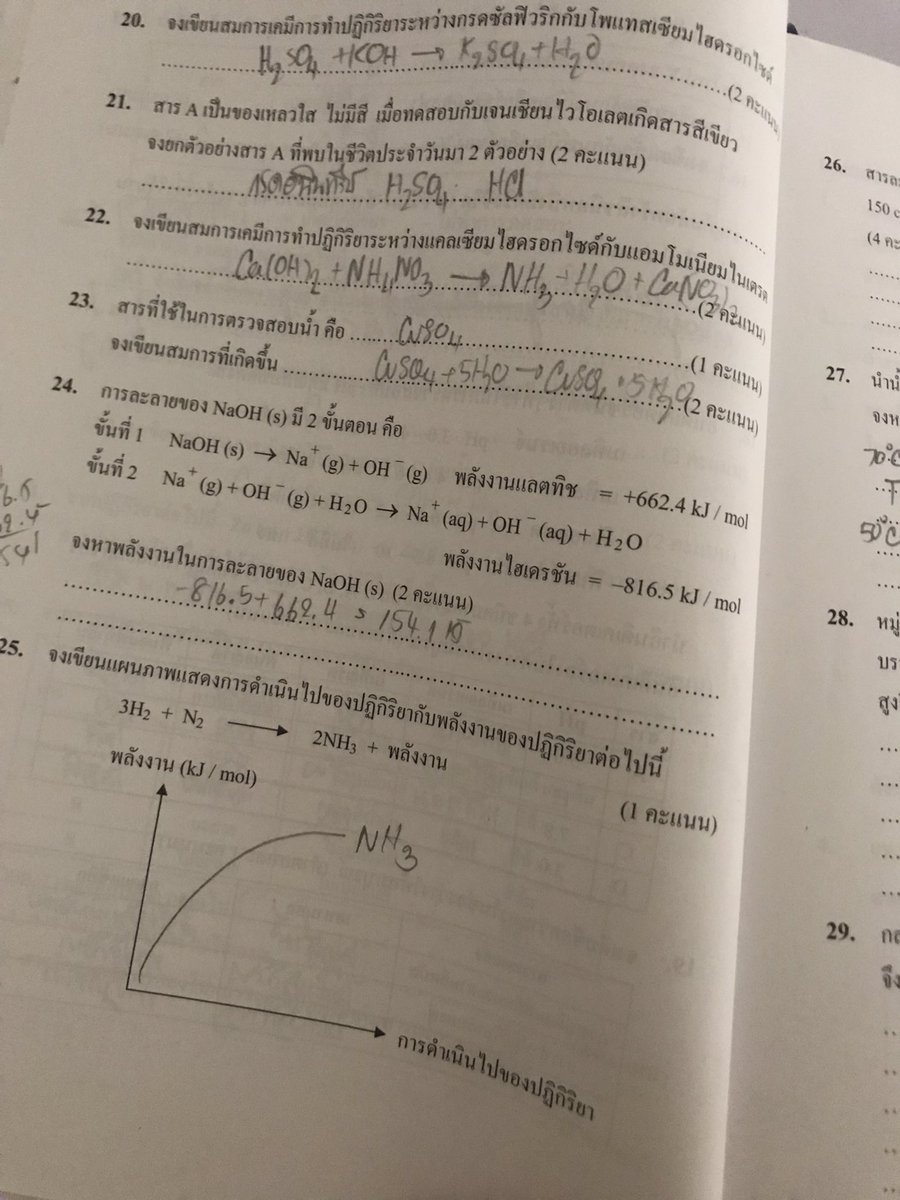 20. จงเขียนสมการเคมีการทำปฏิกิริยาระหว่างกรดซัลฟิวริกกับโพแทสเซียมไฮดรอกไซด์
H₂SO₄ + KOH → K₂SO₄ + H₂O (2 คะแนน)
21. สาร A เป็นของเหลวใส ไม่มีสี เมื่อทดสอบกับเจนเชียนไวโอเลตเกิดสารสีเขียว
จงยกตัวอย่างสาร A ที่พบในชีวิตประจำวันมา 2 ตัวอย่าง (2 คะแนน)
H₂SO₄ HCl
22. จงเขียนสมการเคมีการทำปฏิกิริยาระหว่างแคลเซียมไฮดรอกไซด์กับแอมโมเนียมไนเตรต
Ca(OH)₂ + NH₄NO₃ → NH₃ + H₂O + Ca(NO₃)₂ (2 คะแนน)
23. สารที่ใช้ในการตรวจสอบน้ำ คือ CuSO₄ (1 คะแนน)
จงเขียนสมการที่เกิดขึ้น CuSO₄ + 5H₂O → CuSO₄ • 5H₂O (2 คะแนน)
24. การละลายของ NaOH (s) มี 2 ขั้นตอน คือ
ขั้นที่ 1 NaOH (s) → Na⁺ (g) + OH⁻ (g) พลังงานแลตทิซ = +662.4 kJ / mol
ขั้นที่ 2 Na⁺ (g) + OH⁻ (g) + H₂O → Na⁺ (aq) + OH⁻ (aq) + H₂O
พลังงานไฮเดรชัน = –816.5 kJ / mol
จงหาพลังงานในการละลายของ NaOH (s) (2 คะแนน)
-816.5 + 662.4 = 154.1
25. จงเขียนแผนภาพแสดงการดำเนินไปของปฏิกิริยากับพลังงานของปฏิกิริยาต่อไปนี้
3H₂ + N₂ → 2NH₃ + พลังงาน
(1 คะแนน)
พลังงาน (kJ / mol)
NH₃
การดำเนินไปของปฏิกิริยา
26.
150
27.
50°C
28.
29.